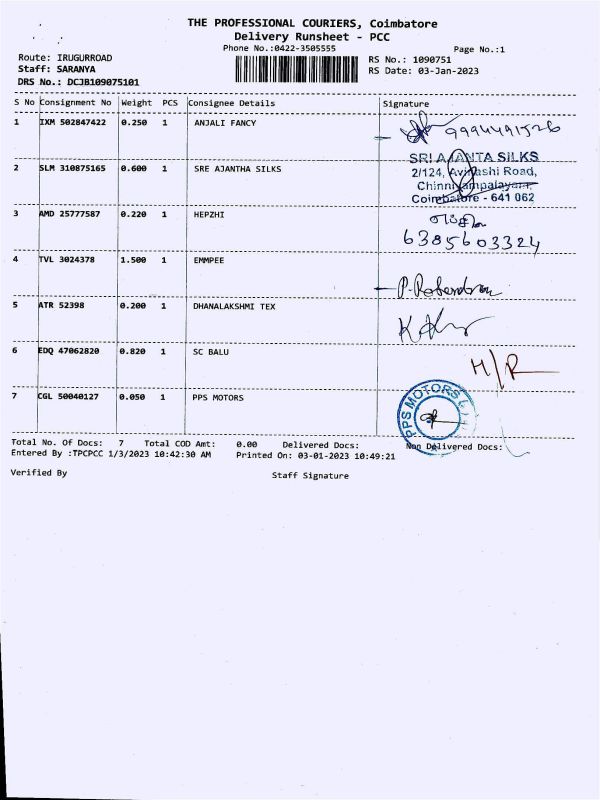 THE PROFESSIONAL COURIERS, Coimbatore
Delivery Runsheet - PCC
Phone No.:0422-3505555 Page No.:1
Route: IRUGURROAD RS No.: 1090751
Staff: SARANYA RS Date: 03-Jan-2023
DRS No.: DCJB109075101
S No Consignment No Weight PCS Consignee Details Signature
1 IXM 502847422 0.250 1 ANJALI FANCY
2 SLM 310875165 0.600 1 SRE AJANTHA SILKS
SRI AJANTA SILKS
2/124, Avinashi Road,
Chinniyampalayam,
Coimbatore - 641 062
3 AMD 25777587 0.220 1 HEPZHI
6385603324
4 TVL 3024378 1.500 1 EMMPEE
5 ATR 52398 0.200 1 DHANALAKSHMI TEX
6 EDQ 47062820 0.820 1 SC BALU
M/R
7 CGL 50040127 0.050 1 PPS MOTORS
PPS MOTORS
Total No. Of Docs: 7 Total COD Amt: 0.00 Delivered Docs: Non Delivered Docs:
Entered By :TPCPCC 1/3/2023 10:42:30 AM Printed On: 03-01-2023 10:49:21
Verified By Staff Signature